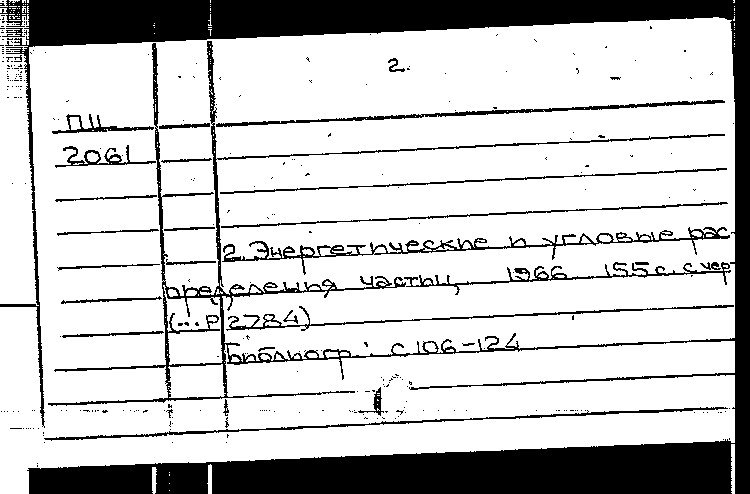 2.
ПЦ
2061
2. Энергетические и угловые рас-
пределения частиц, 1966 155 с. с чер-
(... Р 2784)
Библиогр.: с 106-124